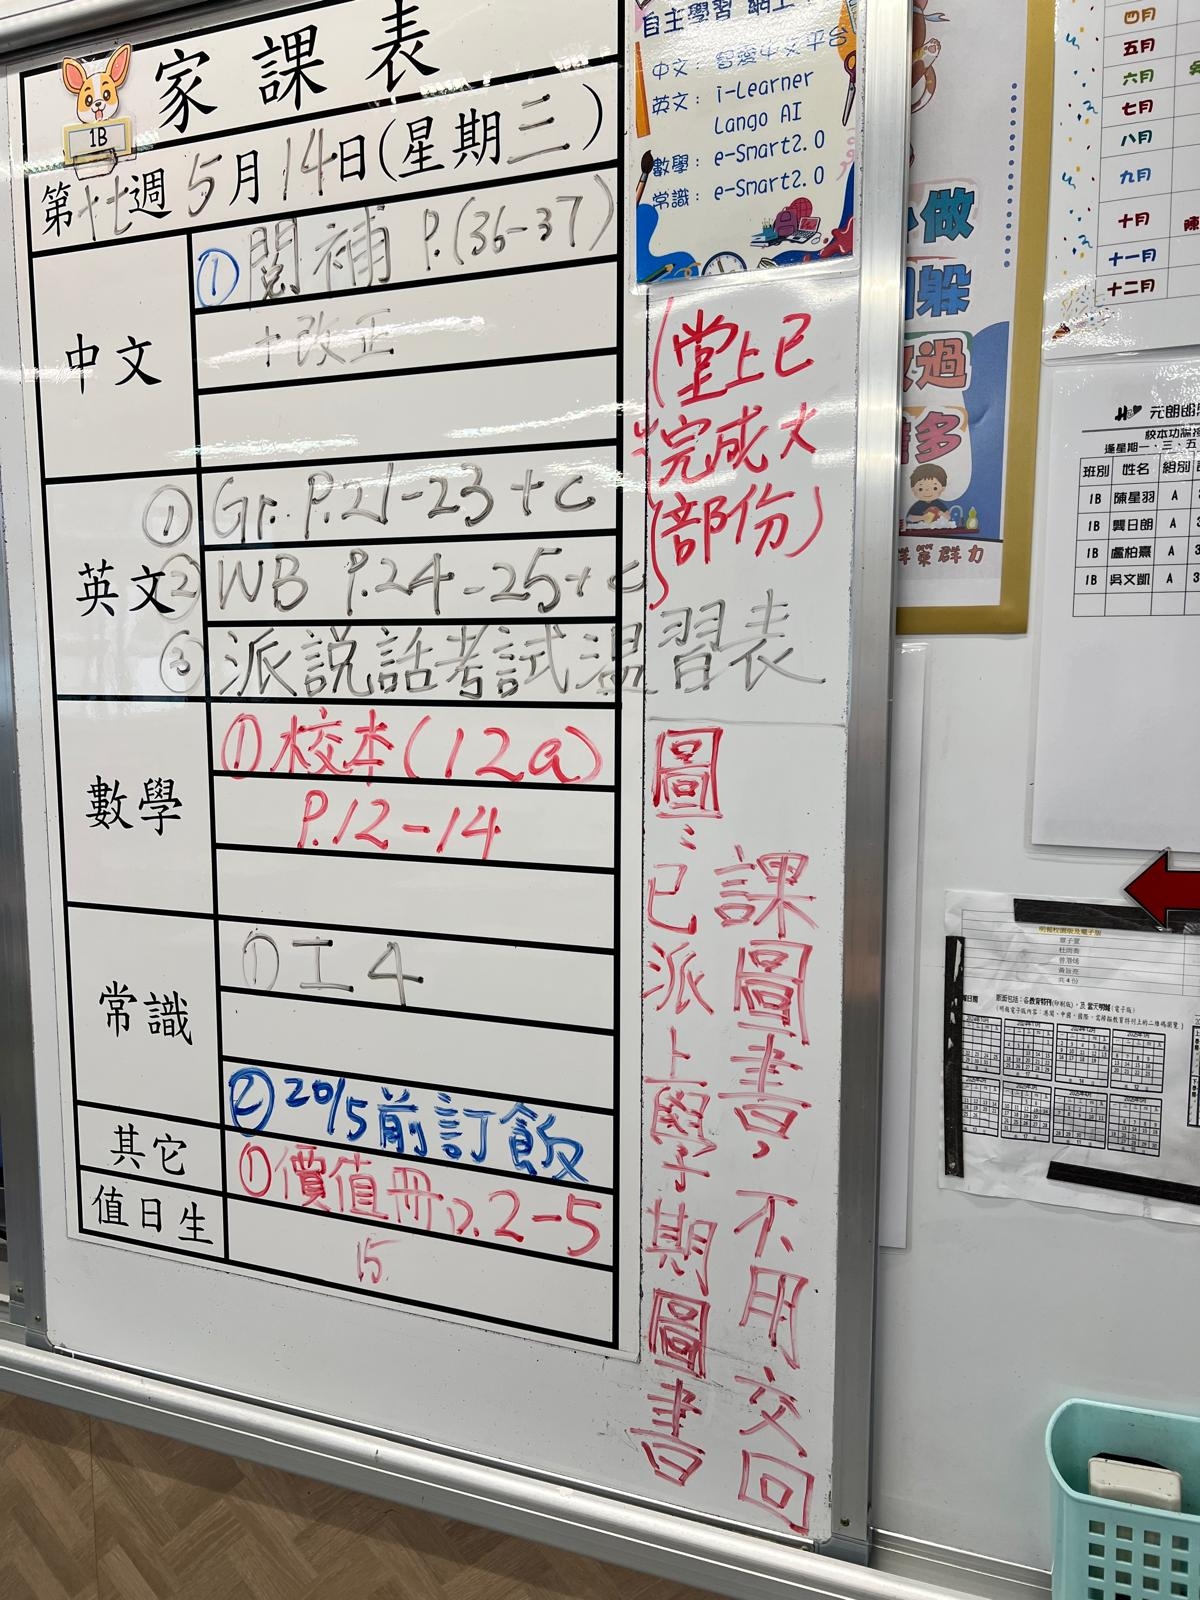 家課表
1B
第廿七週 5月14日(星期三)
中文
①閱補 P.(36-37)
+改正
英文
① Gr. P.21-23+c
② WB P.24-25+c
③ 派說話考試溫習表
數學
①校本(12a)
P.12-14
常識
①工4
②20/5前訂飯
其它
①價值冊p.2-5
值日生
15
自主學習
中文：智愛中文平台
英文：i-Learner
Lango AI
數學：e-Smart2.0
常識：e-Smart2.0
(堂上已
完成大
部份)
圖：已派上學期圖書
課圖書，不用交回
做
躲
過
多
群策群力
四月
五月
六月
七月
八月
九月
十月
十一月
十二月
陳
班別 姓名 組別
1B 陳星羽 A
1B 龔日朗 A
1B 盧柏熹 A
1B 吳文凱 A